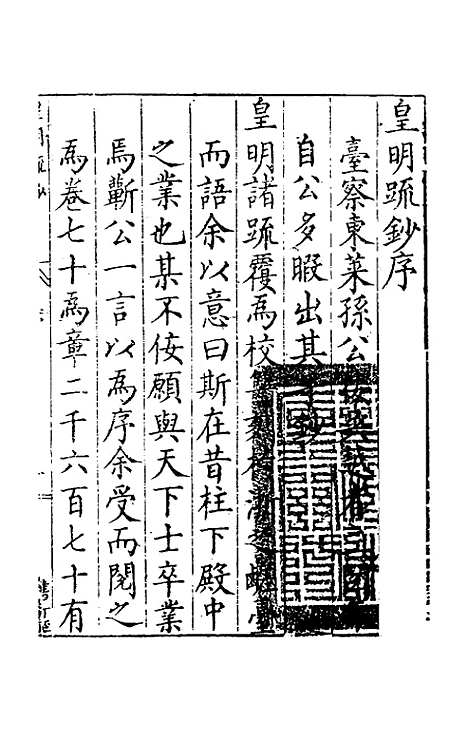 皇明疏鈔序
臺察東萊孫公
自公多暇出其手鈔
皇明諸疏覆爲校
而語余以意曰斯在昔柱下殿中
之業也某不佞願與天下士卒業
焉蘄公一言以爲序余受而閱之
爲卷七十爲章二千六百七十有